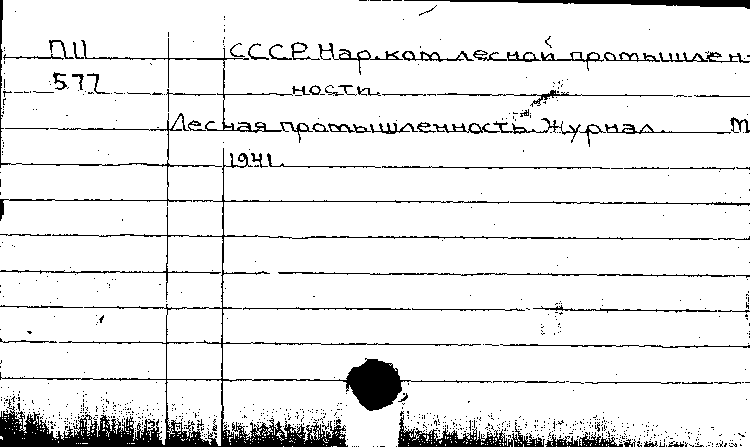 П11 СССР. Нар. ком лесной промышлен-
577 ности.
Лесная промышленность. Журнал. М
1941.